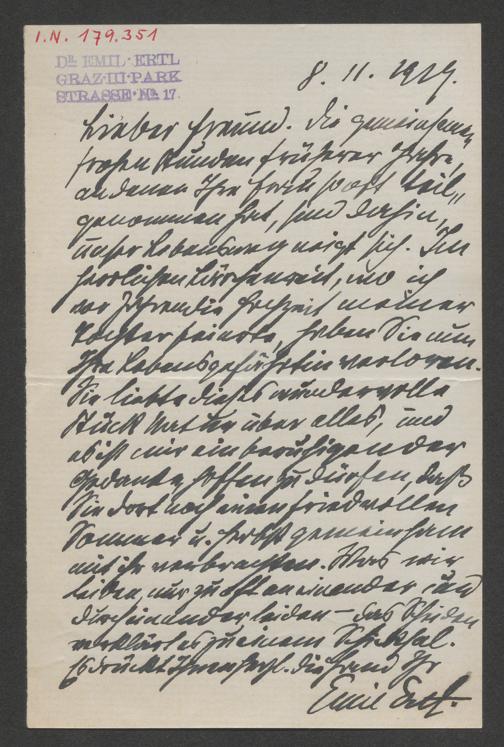 I.N. 179.351
DR. EMIL · ERTL
GRAZ·III·PARK
STRASSE · No. 17.
8. 11. 1929.
Lieber Freund. Die gemeinsamen,
frohen Stunden früherer Jahre,
an denen Ihre Frau so oft teil„
genommen hat, sind dahin,
unser Lebensweg neigt sich. Im
herrlichen wo ich
vor Jahren die Hochzeit meiner
Tochter feierte, haben Sie nun
Ihre Lebensgefährtin verloren.
Sie liebte dieses wundervolle
Stück Natur über alles, und
es ist mir ein beruhigender
Gedanke hoffen zu dürfen, daß
Sie dort noch einen friedvollen
Sommer u. Herbst gemeinsam
mit ihr verbrachten. Was wir
lieben, nur zu oft an einander und
durcheinander leiden – das Scheiden
verklärt es zu einem Schicksal.
Es drückt Ihnen herzl. die Hand Ihr
Emil Ertl.